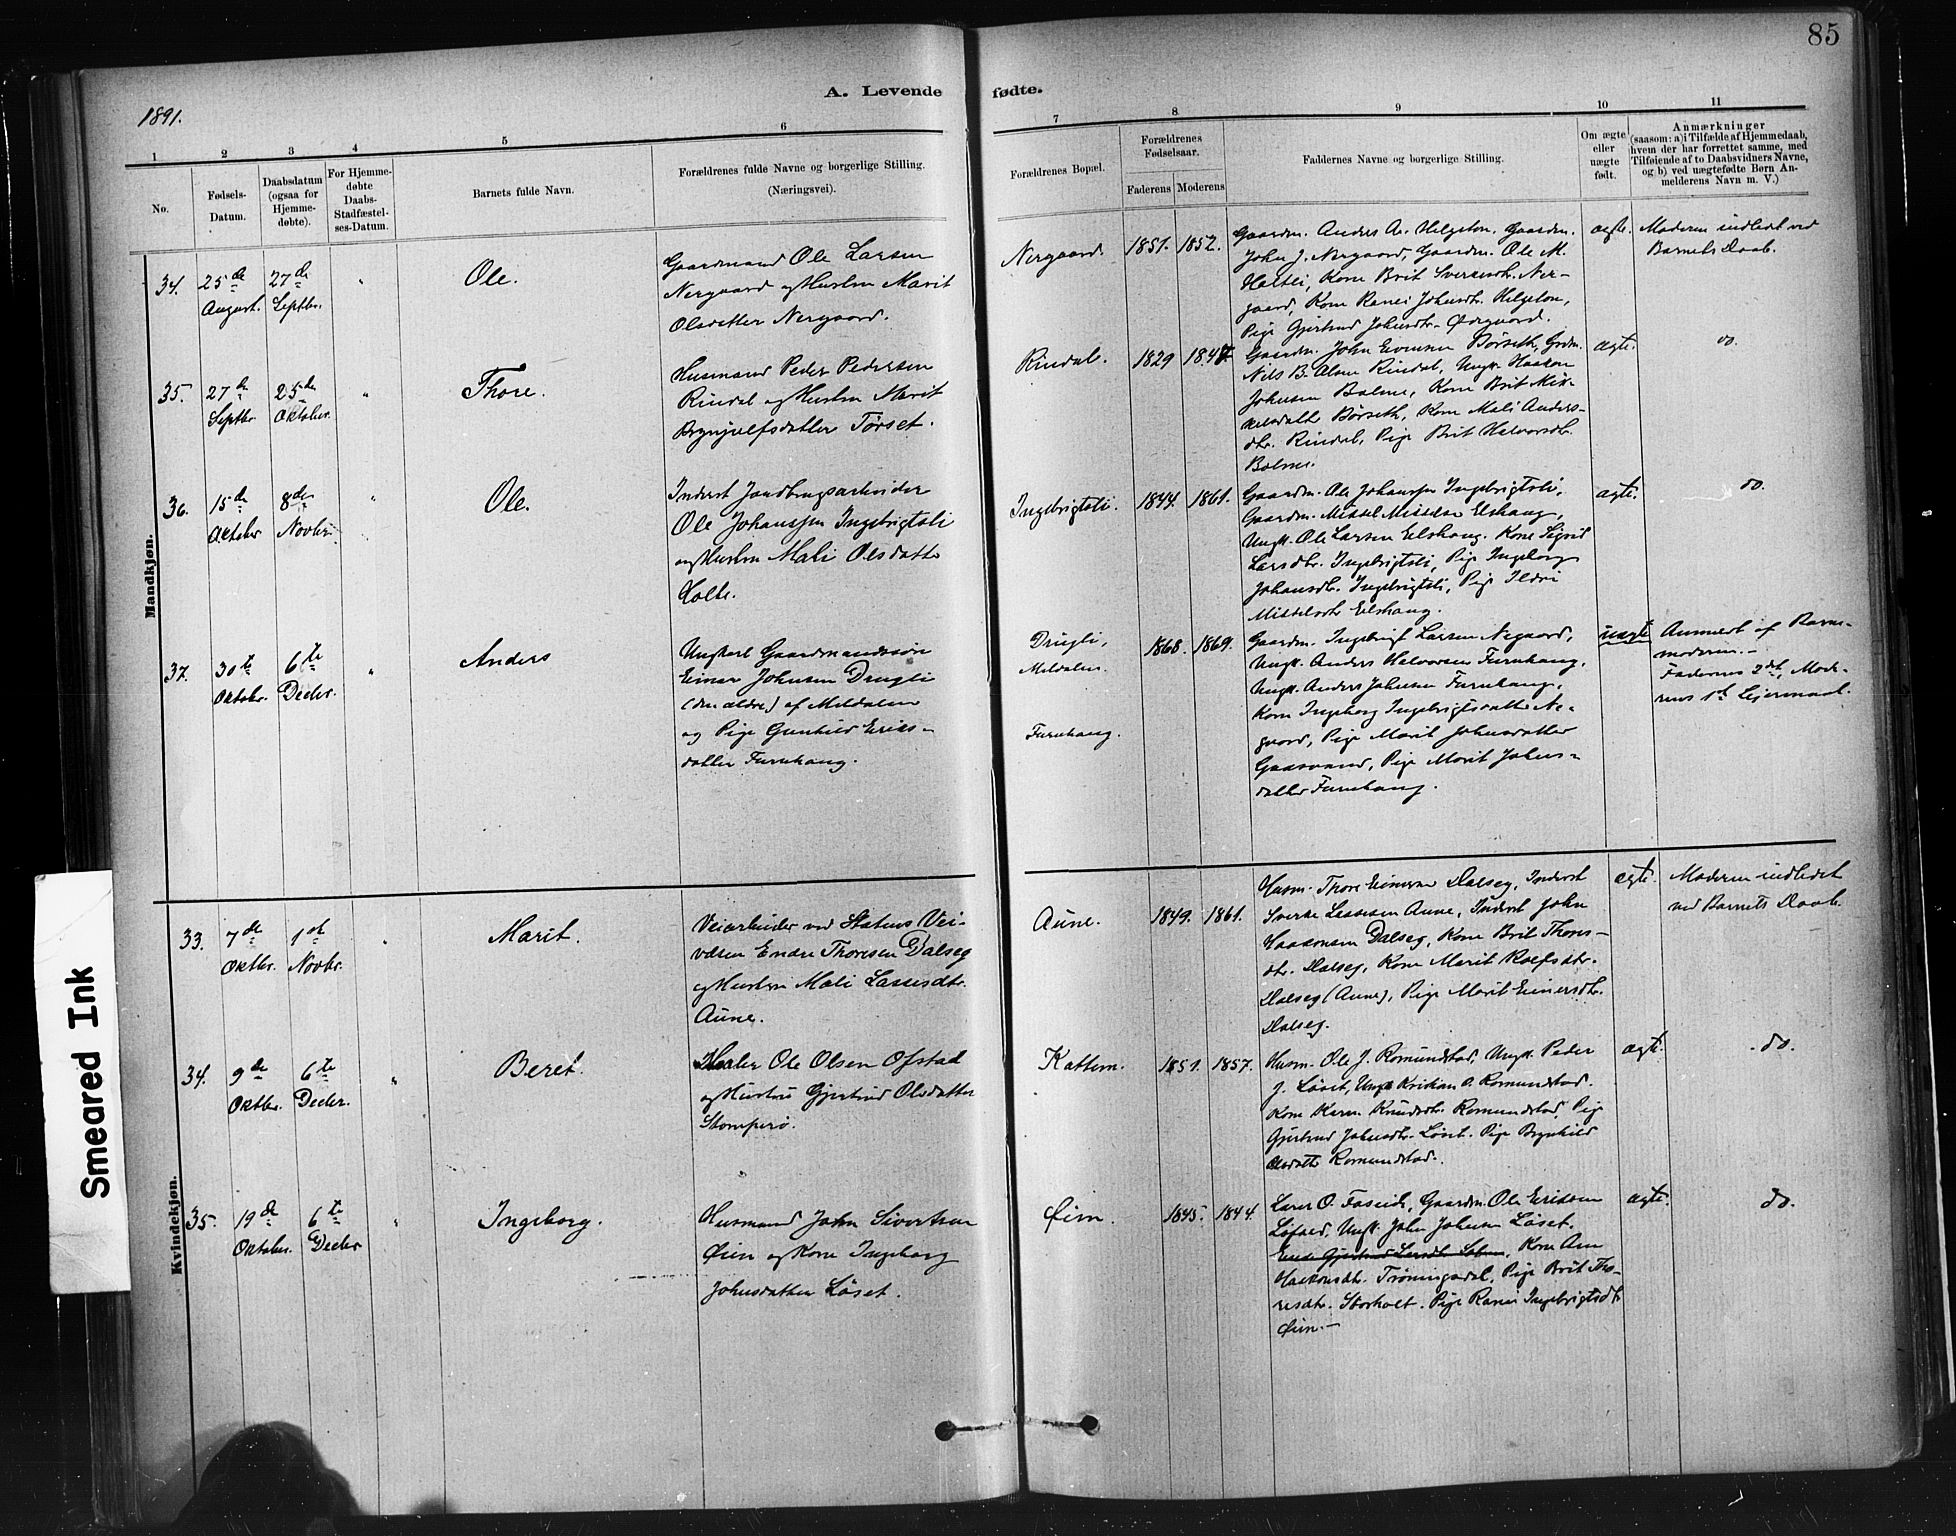 85
1891.
A. Levende fødte.
1 2 3 4 5 6 7 8 9 10 11
No.
Fødsels-
Datum.
Daabsdatum
(ogsaa for
Hjemme-
døbte).
For Hjemme-
døbte
Daabs-
Stadfæstel-
ses-Datum.
Barnets fulde Navn.
Forældrenes fulde Navne og borgerlige Stilling.
(Næringsvei).
Forældrenes Bopæl.
Forældrenes
Fødselsaar.
Faderens Moderens
Faddernes Navne og borgerlige Stilling.
Om ægte
eller
uægte
født.
Anmærkninger
(saasom: a) i Tilfælde af Hjemmedaab,
hvem der har forrettet samme, med
Tilføiende af to Daabsvidners Navne,
og b) ved uægtefødte Børn An-
melderens Navn m. V.)
Mandkjøn.
34.
25de
August.
27de
Septbr.
"
Ole.
Gaardmand Ole Larsen
Nergaard og Hustru Marit
Olsdatter Nergaard.
Nergaard.
1851. 1852.
Gaardm. Anders A. Helgeton, Gaardm.
John J. Nergaard, Gaardm. Ole M.
Haltli, Kone Brit Sverkesdtr. Ner-
gaard, Kone Ranei Johnsdtr. Helgeton,
Pige Gjertrud Johnsdtr. Ørgaard.
ægte.
Moderen indledet ved
Barnets Daab.
35.
27de
Septbr
25de
Oktober.
"
Thore.
Husmand Peder Pedersen
Rindal og Hustru Marit
Brynjulfsdatter Tørset.
Rindal.
1829 1847
Gaardm. John Eivensen Børseth, Grdm.
Nils B. Rindal, Ungk. Haakon
Johnsen Bolme, Kone Brit Mik-
kelsdatter Børseth, Kone Mali Anders-
dtr. Rindal, Pige Brit Halvorsdtr.
Bolme.
ægte.
do.
36.
15de
Oktober
8de
Novbr.
"
Ole.
Inderst Jordbrugsarbeider
Ole Johanssen Ingebrigtsli
og Hustru Mali Olsdatter
Holte.
Ingebrigtsli.
1844. 1861.
Gaardm. Ole Johanssen Ingebrigtsli,
Gaardm. Mikkel Mikkelsen Elshaug,
Ungk. Ole Larsen Elshaug. Kone Sigrid
Larsdtr. Ingebrigtsli, Pige Ingeborg
Johansdtr. Ingebrigtsli, Pige Ildri
Mikkelsdtr Elshaug.
ægte.
do.
37.
30te
Oktober.
6te
Decbr.
"
Anders
Ungkarl Gaardmandssøn
Einar Johnsen Drugli
(den ældre) af Meldalen
og Pige Gunhild Eriks-
datter Furuhaug.
Drugli,
Meldalen.
Furuhaug.
1868. 1869.
Gaardm. Ingebrigt Larsen Negaard,
Ungk. Anders Halvorsen Furuhaug,
Ungk. Anders Johnsen Furuhaug,
Kone Ingeborg Ingebrigtsdatter Ne-
gaard, Pige Marit Johnsdatter
Gaasvand, Pige Marit Johns-
datter Furuhaug.
uægte
Anmeldt af Barne-
moderen.-
Faderens 2det, Mode-
rens 1ste Leiermaal.
Kvindekjøn.
33.
7de
Oktbr.
1st
Novbr.
"
Marit.
Veiarbeider ved Statens Vei-
væsen Endre Thoresen Dalseg
og Hustru Mali Lassesdtr.
Aune.
Aune.
1849. 1861.
Husm. Thore Dalseg, Inderst
Sverke Lassesen Aune, Inderst John
Haakonsen Dalseg, Kone Brit Thores-
dtr. Dalseg, Kone Marit Rolfsdtr.
Dalseg (Aune), Pige Marit Einersdtr.
Dalseg.
ægte.
Moderen indledet
ved Barnets Daab.
34.
9de
Oktbr.
6te
Decbr.
"
Beret.
Maler Ole Olsen Ofstad
og Hustru Gjertrud Olsdatter
Stomperø.
Kattem.
1851. 1857.
Husm. Ole J. Romundstad, Ungk. Peder
J. Løset, Ungk Kristian O. Romundstad.
Kone Karen Knudsdtr. Romundstad, Pige
Gjertrud Johnsdtr. Løset. Pige Brynhild
Olsdatter Romundstad.
ægte.
do.
35.
19de
Oktober.
6te
Decbr
"
Ingeborg.
Husmand John Sivertsen
Øien og Kone Ingeborg
Johnsdatter Løset.
Øien.
1845. 1844.
Lars O. Faseide, Gaardm. Ole Eriksen
Løfald, Ungk. John Johnsen Løset.
Kone Ane
Haakonsdtr. Trøningsdal, Pige Brit Tho-
resdtr. Storholt. Pige Ranei Ingebrigtsdtr
Øien.-
ægte.
do.
Smeared Ink